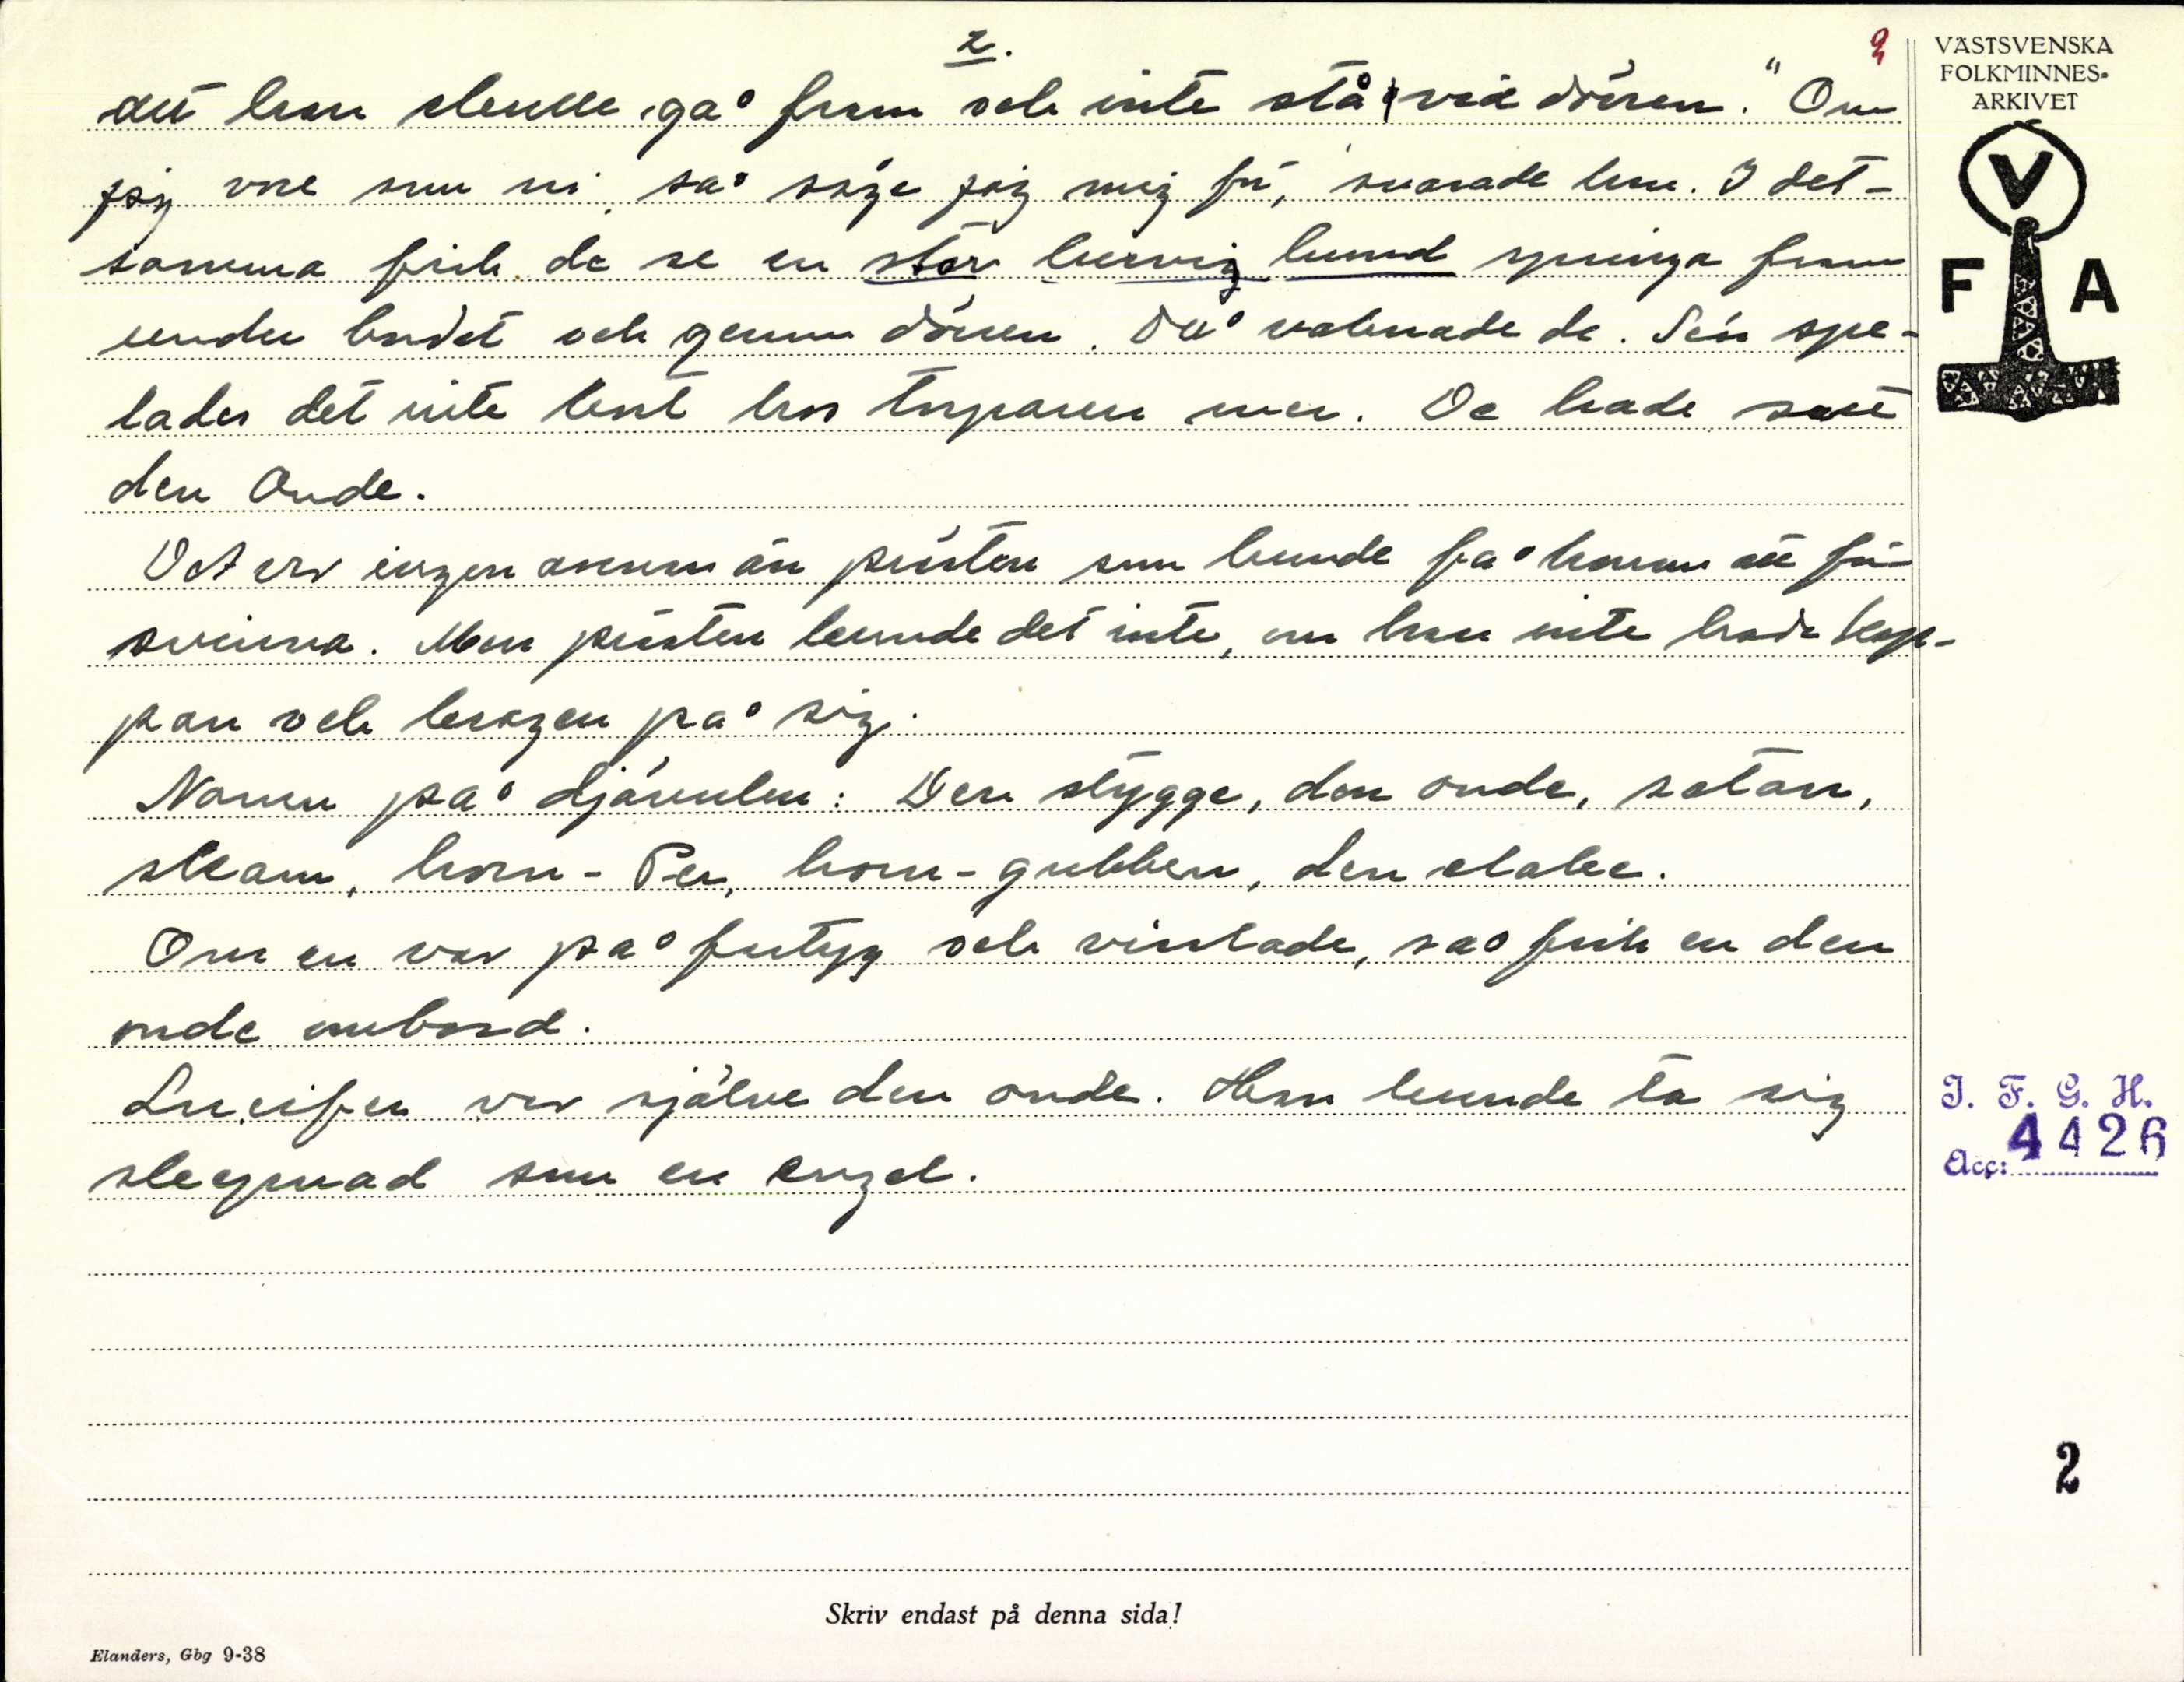 2.
2
VÄSTSVENSKA
FOLKMINNES-
ARKIVET
V
F A
att han skulle gå fram och inte stå vid dörren. "Om
jag vore som ni så såge jag mig för, svarade han. I det-
samma fick de se en stor lurvig hund springa fram
under bordet och genom dörren. Då vaknade de. Sen spe-
lades det inte kort hos torparen mer. De hade sett
den Onde.
Det var ingen annan än prästen som kunde få honom att för-
svinna. Men prästen kunde det inte, om han inte hade kap-
pan och kragen på sig.
Namn på djävulen: Den stygge, den onde, satan,
skam, horn-Per, horn-gubben, den elake.
Om en var på fartyg och visslade, så fick en den
onde ombord.
Lucifer var själve den onde. Han kunde ta sig
skepnad som en engel.
I. F. G. H.
Acc: 4426
2
Skriv endast på denna sida!
Elanders, Gbg 9-38